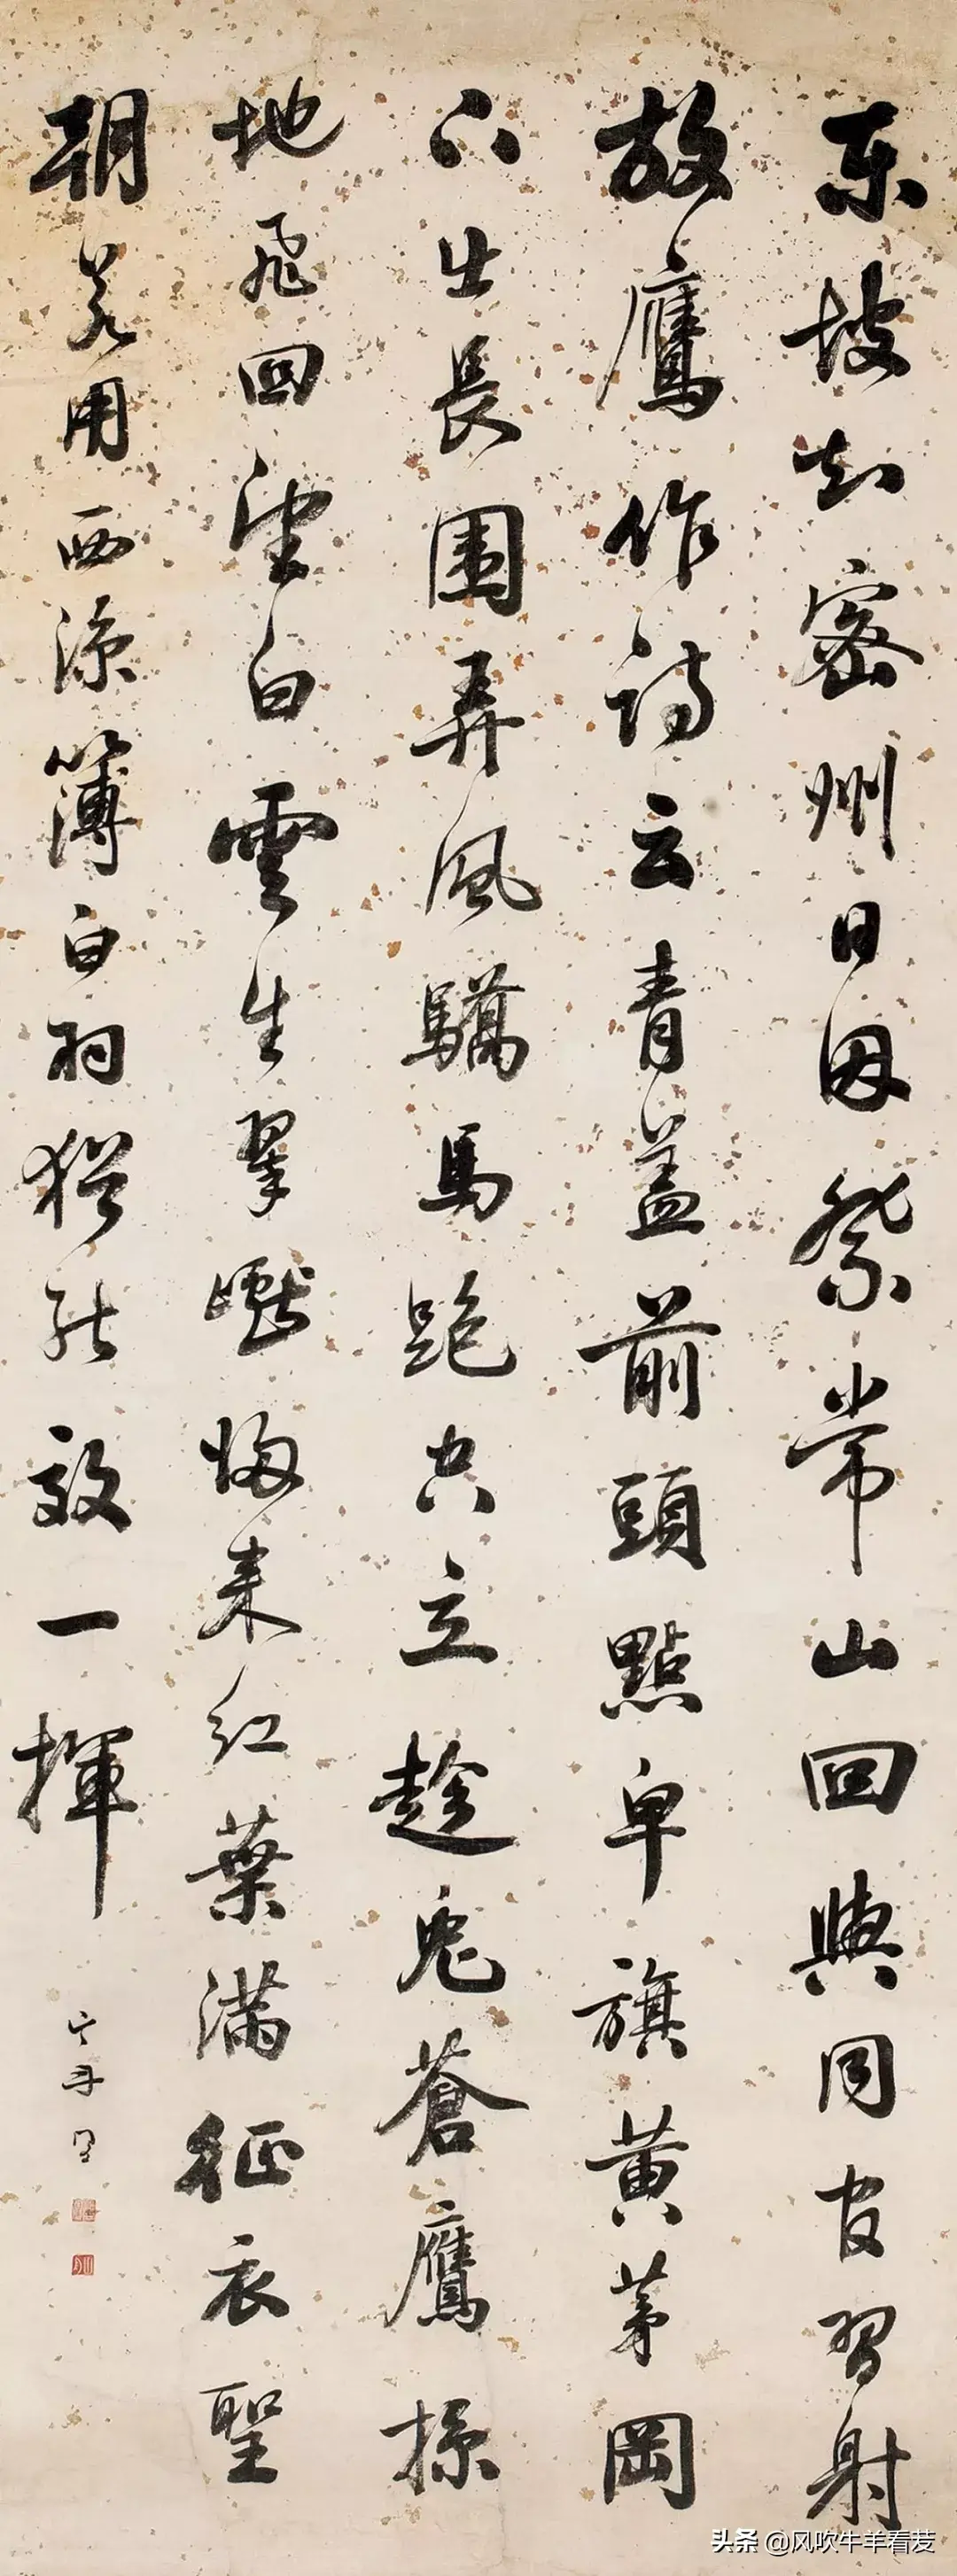 東坡知密州日因祭常山回與同官習射
放鷹作詩云青盖前頭點皁旗黃茅岡
下出長圍弄風驕馬跑空立趁兔蒼鷹掠
地飛回望白雲生翠巘歸来紅葉滿征衣聖
朝若用西涼簿白羽猶能效一揮
头条 @风吹牛羊看茇